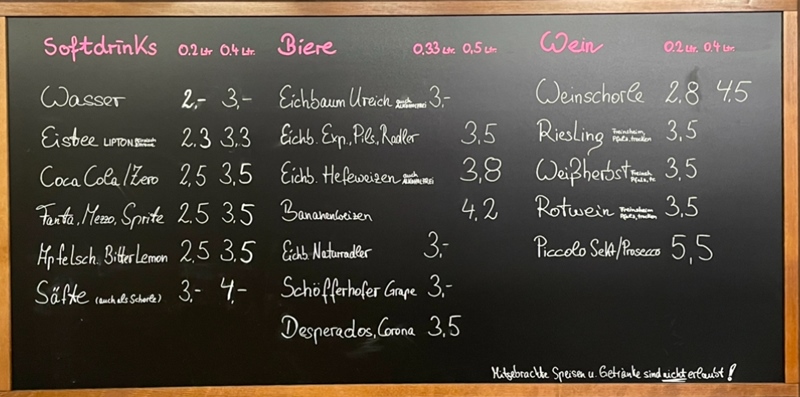 Softdrinks 0.2 Ltr. 0.4 Ltr.
Wasser 2,- 3,-
Eistee LIPTON 2.3 3,3
Coca Cola/Zero 2,5 3,5
Fanta, Mezzo, Sprite 2.5 3.5
Apfelsch. Bitter Lemon 2,5 3,5
Säfte (auch als Schorle) 3,- 4,-
Biere 0,33 Ltr. 0,5 Ltr.
Eichbaum Ureich auch ALKOHOLFREI 3,-
Eichb. Exp., Pils, Radler 3,5
Eichb. Hefeweizen auch ALKOHOLFREI 3,8
Bananenweizen 4,2
Eichb. Naturradler 3,-
Schöfferhofer Grape 3,-
Desperados, Corona 3,5
Wein 0.2 Ltr. 0.4 Ltr.
Weinschorle 2,8 4,5
Riesling Freinsheim Pfalz, trocken 3,5
Weißherbst Freinsh. Pfalz, tr. 3,5
Rotwein Freinsheim Pfalz, trocken 3,5
Piccolo Sekt/Prosecco 5,5
Mitgebrachte Speisen u. Getränke sind nicht erlaubt!